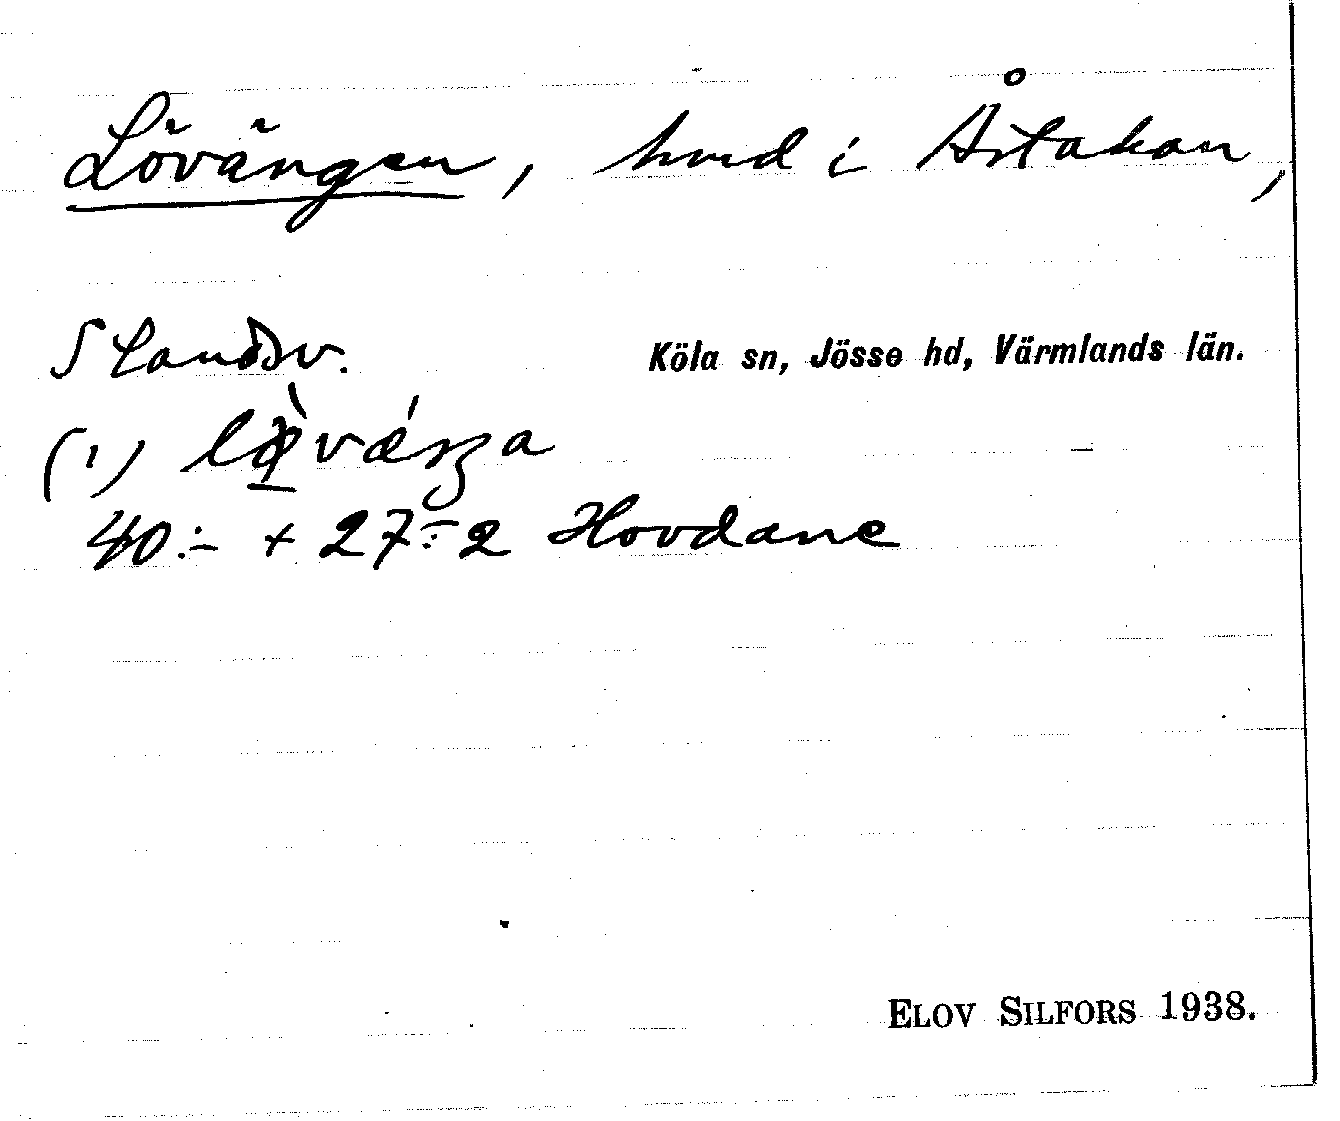 Lövängen, hmd i Årtakan,
S landsv. Köla sn, Jösse hd, Värmlands län.
(1)
40:- + 27:2 Hovdane
ELOV SILFORS 1938.